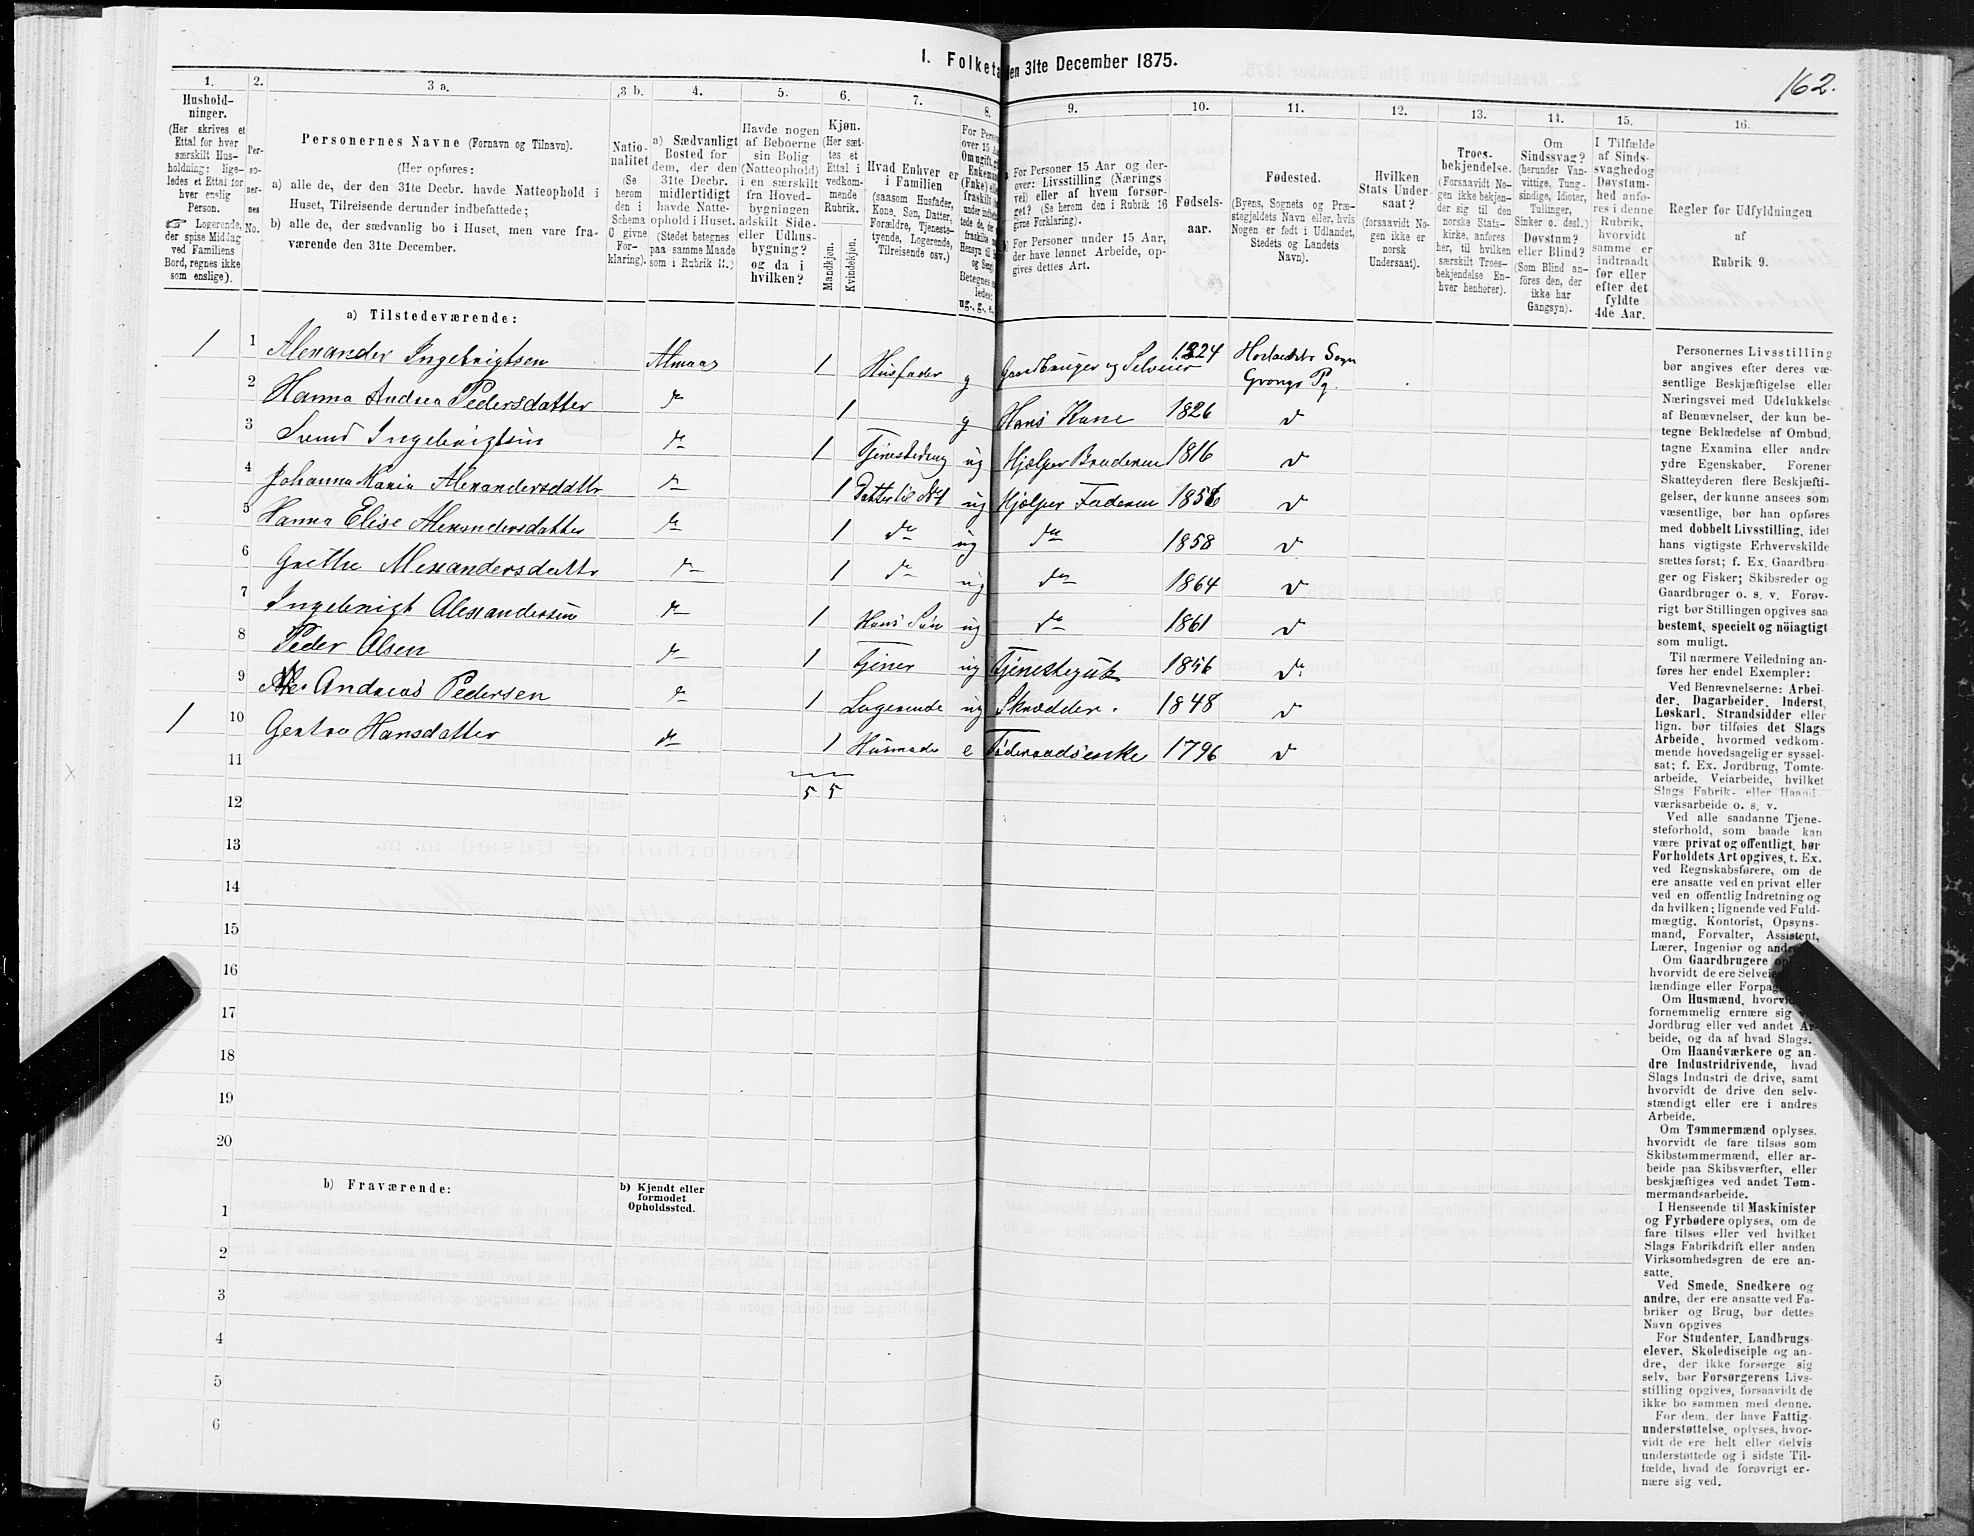 I. Folketa en 31te December 1875.
162.
1. 2. 3 a. 3 b. 4. 5. 6. 7. 8. 9. 10. 11. 12. 13. 14. 15. 16.
Hushold-
ninger.
(Her skrives et
Ettal for hver
særskilt Hus-
holdning; lige-
ledes et Ettal for
hver enslig
Person.
☞ Logerende,
der spise Middag
ved Familiens
Bord, regnes ikke
som enslige).
Per-
so-
ner-
nes
No.
Personernes Navne (Fornavn og Tilnavn).
(Her opføres:
a) alle de, der den 31te Decbr. havde Natteophold i
Huset, Tilreisende derunder indbefattede;
b) alle de, der sædvanlig bo i Huset, men vare fra-
værende den 31te December.
Natio-
nalitet
(Se
herom
den i
Schema
C givne
For-
klaring).
a) Sædvanligt
Bosted for
dem, der den
31te Decbr.
midlertidigt
havde Natte-
ophold i Huset.
(Stedet betegnes
paa samme Maade
som i Rubrik 11.)
Havde nogen
af Beboerne
sin Bolig
(Natteophold)
i en særskilt
fra Hoved-
bygningen
adskilt Side-
eller Udhus-
bygning?
og da i
hvilken?
Kjøn.
(Her sæt-
tes et
Ettal i
vedkom-
mende
Rubrik.
Mandkjøn.
Kvindekjøn.
Hvad Enhver er
i Familien
(saasom Husfader,
Kone, Søn, Datter,
Forældre, Tjeneste-
tyende, Logerende,
Tilreisende osv.)
For Pers
over 15 Aar
Om ugift, g
Enkema
(Enke) ell
fraskilt
Betegnes
ledes:
ug., g., e.,
a) For Personer 15 Aar og der-
over: Livsstilling (Nærings-
vei) eller af hvem forsør-
get? (Se herom den i Rubrik 16
givne Forklaring).
b) For Personer under 15 Aar,
der have lønnet Arbeide, op-
gives dettes Art.
Fødsels-
aar.
Fødested.
(Byens, Sognets og Præ-
stegjeldets Navn eller, hvis
Nogen er født i Udlandet,
Stedets og Landets
Navn).
Hvilken
Stats Under-
saat?
(forsaavidt No-
gen ikke er
norsk
Undersaat).
Troes-
bekjendelse.
(Forsaavidt No-
gen ikke bekjen-
der sig til den
norske Stats-
kirke, anføres
her, til hvilken
særskilt Troes-
bekjendelse En-
hver henhører).
Om
Sindssvag?
(herunder Van-
vittige, Tung-
sindige, Idioter,
Tullinger,
Sinker o. desl.)
Døvstum?
eller Blind?
(Som Blind an-
føres den, der
ikke har
Gangsyn).
I Tilfælde
af Sinds-
svaghed og
Døvstum-
hed anfø-
res i denne
Rubrik,
hvorvidt
samme er
indtraadt
før eller
efter det
fyldte
4de Aar.
Regler for Udfyldningen
af
Rubrik 9.
a) Tilstedeværende:
1 1 Alexander Ingebrigtsen Almaas 1 Husfader g Gaardbruger og Selveier 1824 Sogn
Grongs Pg.
2 Hanna Andrea Pedersdatter do 1 g Hans Kone 1826 do
3 Svend Ingebrigtsen do 1 ug Hjælper Broderen 1816 do
4 Johanna Maria Alexandersdattr do 1 Datter til No 1 ug Hjælper Faderen 1856 do
5 Hanna Elise Alexandersdatter do 1 do ug do 1858 do
6 Grethe Alexandersdattr do 1 do ug do 1864 do
7 Ingebrigt Alexandersen do 1 Hans Søn ug do 1861 do
8 Peder Olsen do 1 Tjener ug 1856 do
9 Andreas Pedersen do 1 Logerende ug Skrædder. 1848 do
1 10 Hansdatter do 1 e Føderaadsenke 1796 do
11
5 5
12
13
14
15
16
17
18
19
20
b) Fraværende:
b) Kjendt eller
formodet
Opholdssted.
1
2
3
4
5
6
Personernes Livsstilling
bør angives efter deres væ-
sentlige Beskjæftigelse eller
Næringsvei med Udelukkelse
af Benævnelser, der kun be-
tegne Beklædelse af Ombud,
tagne Examina eller andre
ydre Egenskaber. Forener
Skatteyderen flere Beskjæfti-
gelser, der kunne ansees som
væsentlige, bør han opføres
med dobbelt Livsstilling, idet
hans vigtigste Erhvervskilde
sættes først; f. Ex. Gaardbru-
ger og Fisker; Skibsreder og
Gaardbruger o. s. v. Forøv-
rigt bør Stillingen opgives saa
bestemt, specielt og nöiagtigt
som muligt.
Til nærmere Veiledning an-
føres her endel Exempler:
Ved Benævnelserne: Arbei-
der, Dagarbeider, Inderst,
Løskarl, Strandsidder eller
lign. bør tilføies det Slags
Arbeide, hvormed vedkom-
mende hovedsagelig er syssel-
sat; f. Ex. Jordbrug, Tomte-
arbeide, Veiarbeide, hvilket
Slags Fabrik- eller Haand-
værksarbeide o. s. v.
Ved alle saadanne Tjene-
steforhold, som baade kan
være privat og offentligt, bør
Forholdets Art opgives, t. Ex.
ved Regnskabsførere, om de
ere ansatte ved en privat eller
ved en offentlig Indretning og
da hvilken; lignende ved Fuld-
mægtig, Kontorist, Opsyns-
mand, Forvalter, Assistent,
Lærer, Ingeniør og andre
Om Gaardbrugere op
hvorvidt de ere Selveie
lændinge eller Forpag
Om Husmænd, hvorvi
fornemmelig ernære sig
Jordbrug eller ved andet Ar-
beide, og da af hvad Slags.
Om Haandværkere og an-
dre Industridrivende, hvad
Slags Industri de drive, samt
hvorvidt de drive den selv-
stændigt eller ere i andres
Arbeide.
Om Tømmermænd oplyses,
hvorvidt de fare tilsøs som
Skibstømmermænd, eller ar-
beide paa Skibsværfter, eller
beskjæftiges ved andet Tøm-
mermandsarbeide.
I Henseende til Maskinister
og Fyrbødere oplyses, om de
fare tilsøs eller ved hvilket
Slags Fabrikdrift eller anden
Virksomhedsgren de ere an-
satte.
Ved Smede, Snedkere og
andre, der ere ansatte ved Fa-
briker og Brug, bør dettes
Navn opgives
For Studenter, Landbrugs-
elever, Skoledisciple og an-
dre, der ikke forsørge sig
selv, bør Forsørgerens Livs-
stilling opgives, forsaavidt de
ikke bo sammen med denne.
For dem, der have Fattig-
understøttelse, oplyses, hvor-
vidt de ere helt eller delvis
understøttede og i sidste Til-
fælde, hvad de forøvrigt er-
nære sig ved.